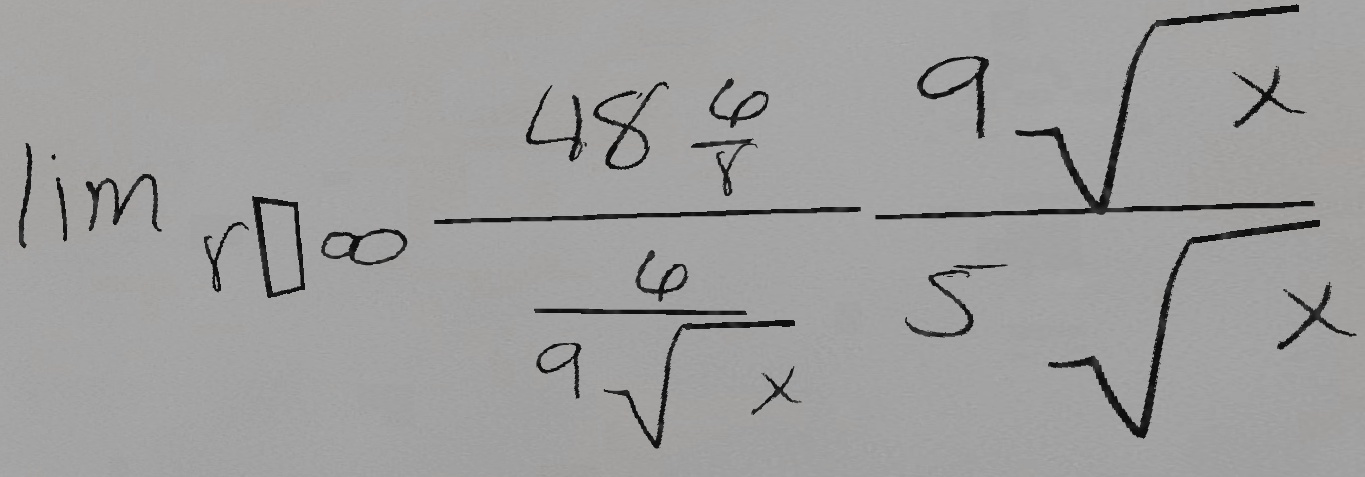 \lim_{r▯\infty} \frac{48\frac{\varphi}{r}}{\frac{\varphi}{9\sqrt{x}}} \frac{9\sqrt{x}}{5\sqrt{x}}